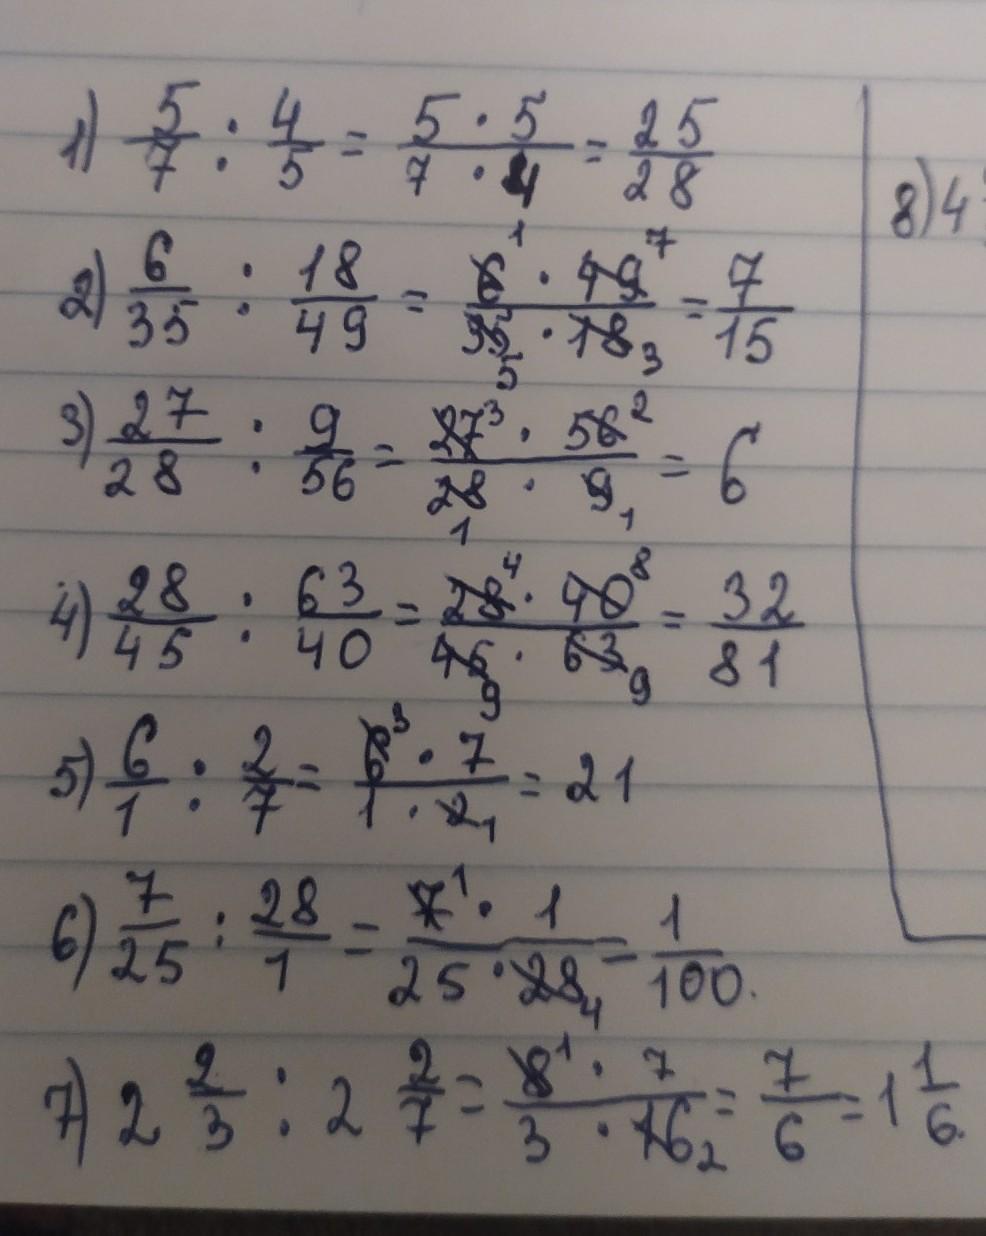 1) 5/7 : 4/5 = 5 · 5 / 7 · 4 = 25/28
2) 6/35 : 18/49 = 6 1 · 49 7 / 35 5 · 18 3 = 7/15
3) 27/28 : 9/56 = 27 3 · 56 2 / 28 1 · 9 1 = 6
4) 28/45 : 63/40 = 28 4 · 40 8 / 45 9 · 63 9 = 32/81
5) 6/1 : 2/7 = 6 3 · 7 / 1 · 2 1 = 21
6) 7/25 : 28/1 = 7 1 · 1 / 25 · 28 4 = 1/100.
7) 2 2/3 : 2 2/7 = 8 1 · 7 / 3 · 16 2 = 7/6 = 1 1/6.
8) 4